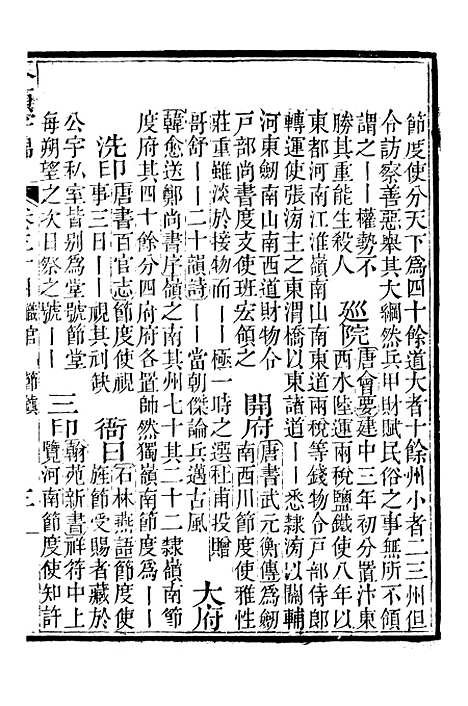 節度使分天下爲四十餘道大者十餘州小者二三州但
令訪察善惡舉其大綱然兵甲財賦民俗之事無所不領
謂之丨丨權勢不
勝其重能生殺人
廵院
唐會要建中三年初分置汴東
西水陸運兩稅鹽鐵使八年以
東都河南江淮嶺南山南東道兩稅等錢物令戶部侍郎
轉運使張滂主之東渭橋以東諸道丨丨悉隸滂以關輔
河東劒南山南西道財物令
戶部尚書度支使班宏領之
開府
唐書武元衡傳爲劒
南西川節度使雅性
莊重雖淡於接物而丨丨極一時之選杜甫投贈
哥舒丨丨二十韻詩丨丨當朝傑論兵邁古風
大府
韓愈送鄭尚書序嶺之南其州七十其二十二隸嶺南節
度府其四十餘分四府府各置帥然獨嶺南節度爲丨丨
洗印
唐書百官志節度使視
事三日丨丨視其刓缺
衙日
石林燕語節度使
旌節受賜者藏於
公宇私室皆别爲堂號節堂
每朔望之次日祭之號丨丨
三印
翰苑新書祥符中上
覽河南節度使知許
職官
節鎮
三